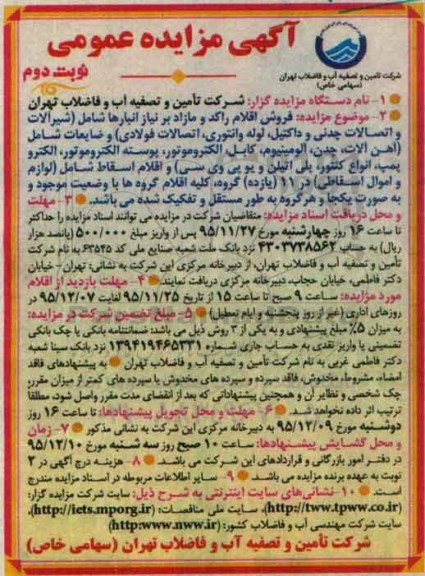 آگهی مزایده عمومی
نوبت دوم
شرکت تأمین و تصفیه آب و فاضلاب تهران
(سهامی خاص)
۱- نام دستگاه مزایده گزار: شرکت تأمین و تصفیه آب و فاضلاب تهران
۲- موضوع مزایده: فروش اقلام راکد و مازاد بر نیاز انبارها شامل (شیرآلات
و اتصالات چدنی و داکتیل، لوله وانتوری، اتصالات فولادی) و ضایعات شامل
(آهن آلات، چدن، آلومینیوم، کابل، الکتروموتور، پوسته الکتروموتور، الکترو
پمپ، انواع کنتور، پلی اتیلن و یو پی وی سی) و اقلام اسقاط شامل (لوازم
و اموال اسقاطی) در ۱۱ (یازده) گروه، کلیه اقلام گروه ها با وضعیت موجود و
به صورت یکجا و هر گروه به طور مستقل و تفکیک شده می باشد. ۳- مهلت
و محل دریافت اسناد مزایده: متقاضیان شرکت در مزایده می توانند اسناد مزایده را حداکثر
تا ساعت ۱۶ روز چهارشنبه مورخ ۹۵/۱۱/۲۷ پس از واریز مبلغ ۵۰۰/۰۰۰ (پانصد هزار
ریال) به حساب ۴۳۰۳۷۳۸۵۶۲ نزد بانک ملت شعبه صنایع ملی کد ۶۳۵۴۵ به نام شرکت
تأمین و تصفیه آب و فاضلاب تهران، از دبیرخانه مرکزی این شرکت به نشانی: تهران - خیابان
دکتر فاطمی، خیابان حجاب، دبیرخانه مرکزی دریافت نمایند. ۴- مهلت بازدید از اقلام
مورد مزایده: ساعت ۹ صبح تا ساعت ۱۵ از تاریخ ۹۵/۱۱/۲۵ لغایت ۹۵/۱۲/۰۷ در
روزهای اداری (غیر از روز پنجشنبه و ایام تعطیل) ۵- مبلغ تضمین شرکت در مزایده:
به میزان ۵٪ مبلغ پیشنهادی و به یکی از ۳ روش ذیل می باشد: ضمانتنامه بانکی یا چک بانکی
تضمینی یا واریز نقدی به حساب جاری شماره ۱۳۹۴۱۹۴۶۵۳۳۱ نزد بانک سینا شعبه
دکتر فاطمی غربی به نام شرکت تأمین و تصفیه آب و فاضلاب تهران به پیشنهادهای فاقد
امضاء، مشروط، مخدوش، فاقد سپرده و سپرده های مخدوش یا سپرده های کمتر از میزان مقرر،
چک شخصی و نظایر آن و همچنین پیشنهاداتی که بعد از انقضای مدت مقرر واصل شود، مطلقا
ترتیب اثر داده نخواهد شد. ۶- مهلت و محل تحویل پیشنهادها: تا ساعت ۱۶ روز
دوشنبه مورخ ۹۵/۱۲/۰۹ به دبیرخانه مرکزی این شرکت به نشانی مذکور ۷- زمان
و محل گشایش پیشنهادها: ساعت ۱۰ صبح روز سه شنبه مورخ ۹۵/۱۲/۱۰
در دفتر امور بازرگانی و قراردادهای این شرکت می باشد. ۸- هزینه درج آگهی در ۲
نوبت به عهده برنده مزایده می باشد. ۹- سایر اطلاعات مربوطه در اسناد مزایده مندرج
است. ۱۰- نشانی های سایت اینترنتی به شرح ذیل: سایت شرکت مزایده گزار:
(http://tww.tpww.co.ir)، سایت ملی مناقصات: (http://iets.mporg.ir)،
سایت شرکت مهندسی آب و فاضلاب کشور: (http:www.nww.ir)
شرکت تأمین و تصفیه آب و فاضلاب تهران (سهامی خاص)